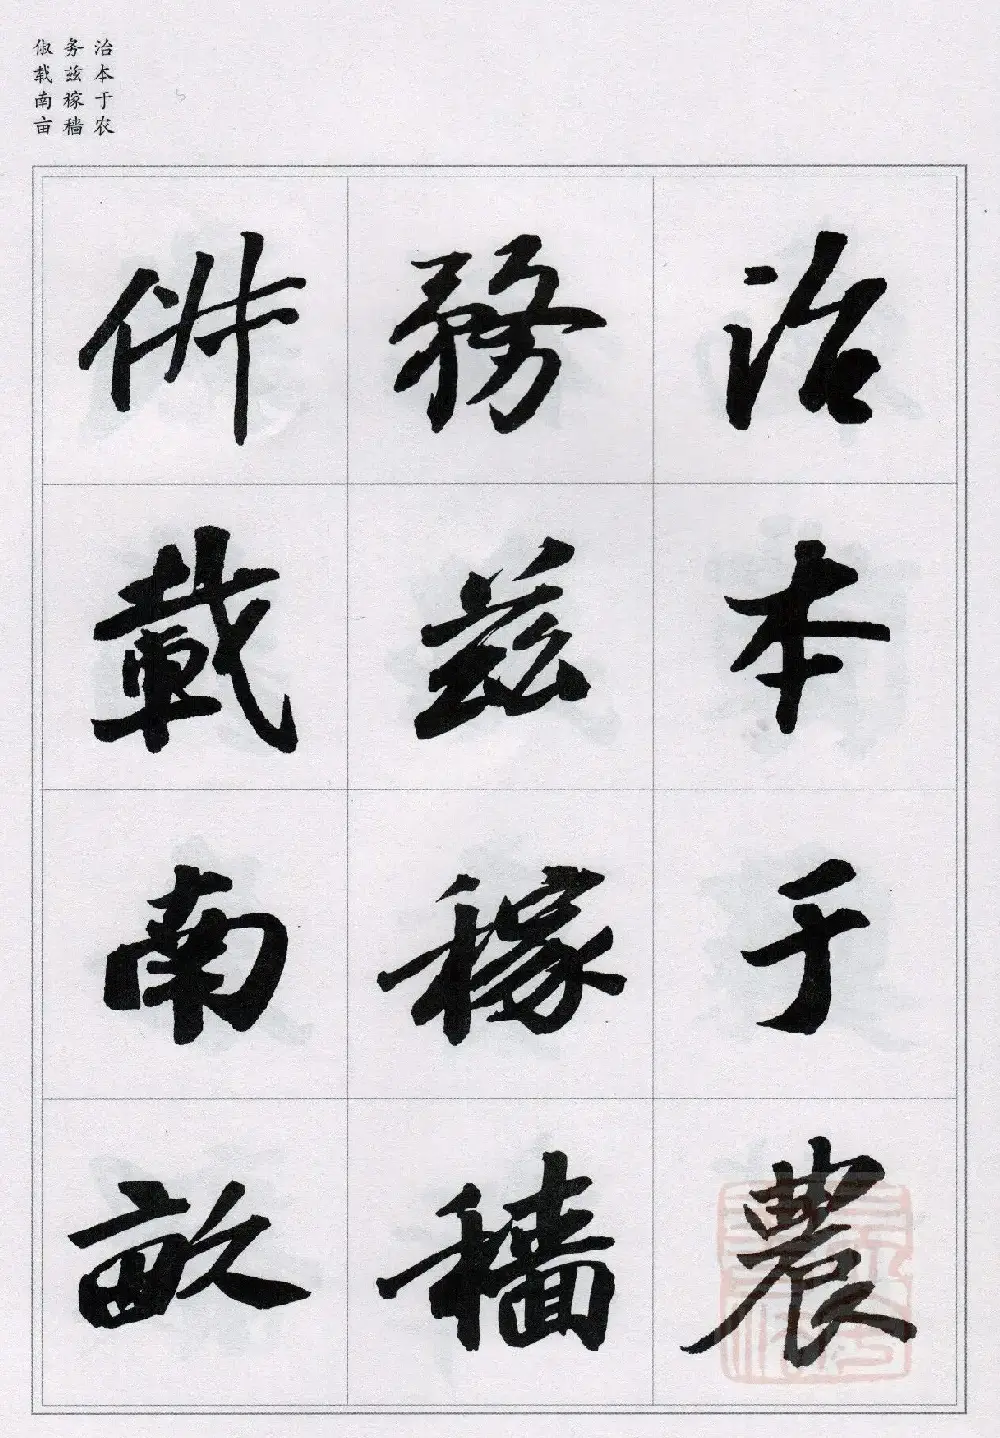 治本于农
务兹稼穑
俶载南亩
治本于農
務兹稼穡
俶載南畝